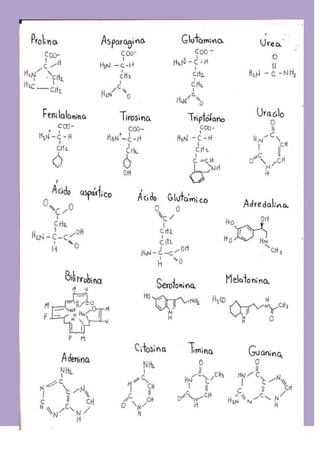 Prolina Asparagina Glutamina Urea
COO- COO- COO- O
C H H3N - C - H H3N - C - H H2N - C - NH2
H2N CH2 CH2 CH2
H2C CH2 C CH2
H2N O C
H2N O
Fenilalanina Tirosina Triptófano Uracilo
COO- COO- COO- O
H3N - C - H H3N - C - H H3N - C - H C
CH2 CH2 CH2 H N CH
C CH C CH
OH NH O N
H
Ácido aspártico Ácido Glutámico Adredalina
O O O O OH
C C HO
CH2 CH2 HO HN
H2N - C - C OH CH2 CH3
H O H2N - C - C OH
H O
Bilirrubina Serotonina Melatonina
HO NH2 H3CO H CH3
M O N N
P N H H O
P M
Adenina Citosina Timina Guanina
NH2 NH2 O O
C C C C
N C N N CH HN C CH3 HN C N
C C CH C CH C CH C C CH
H N N O N O N H2N N N
H H H H